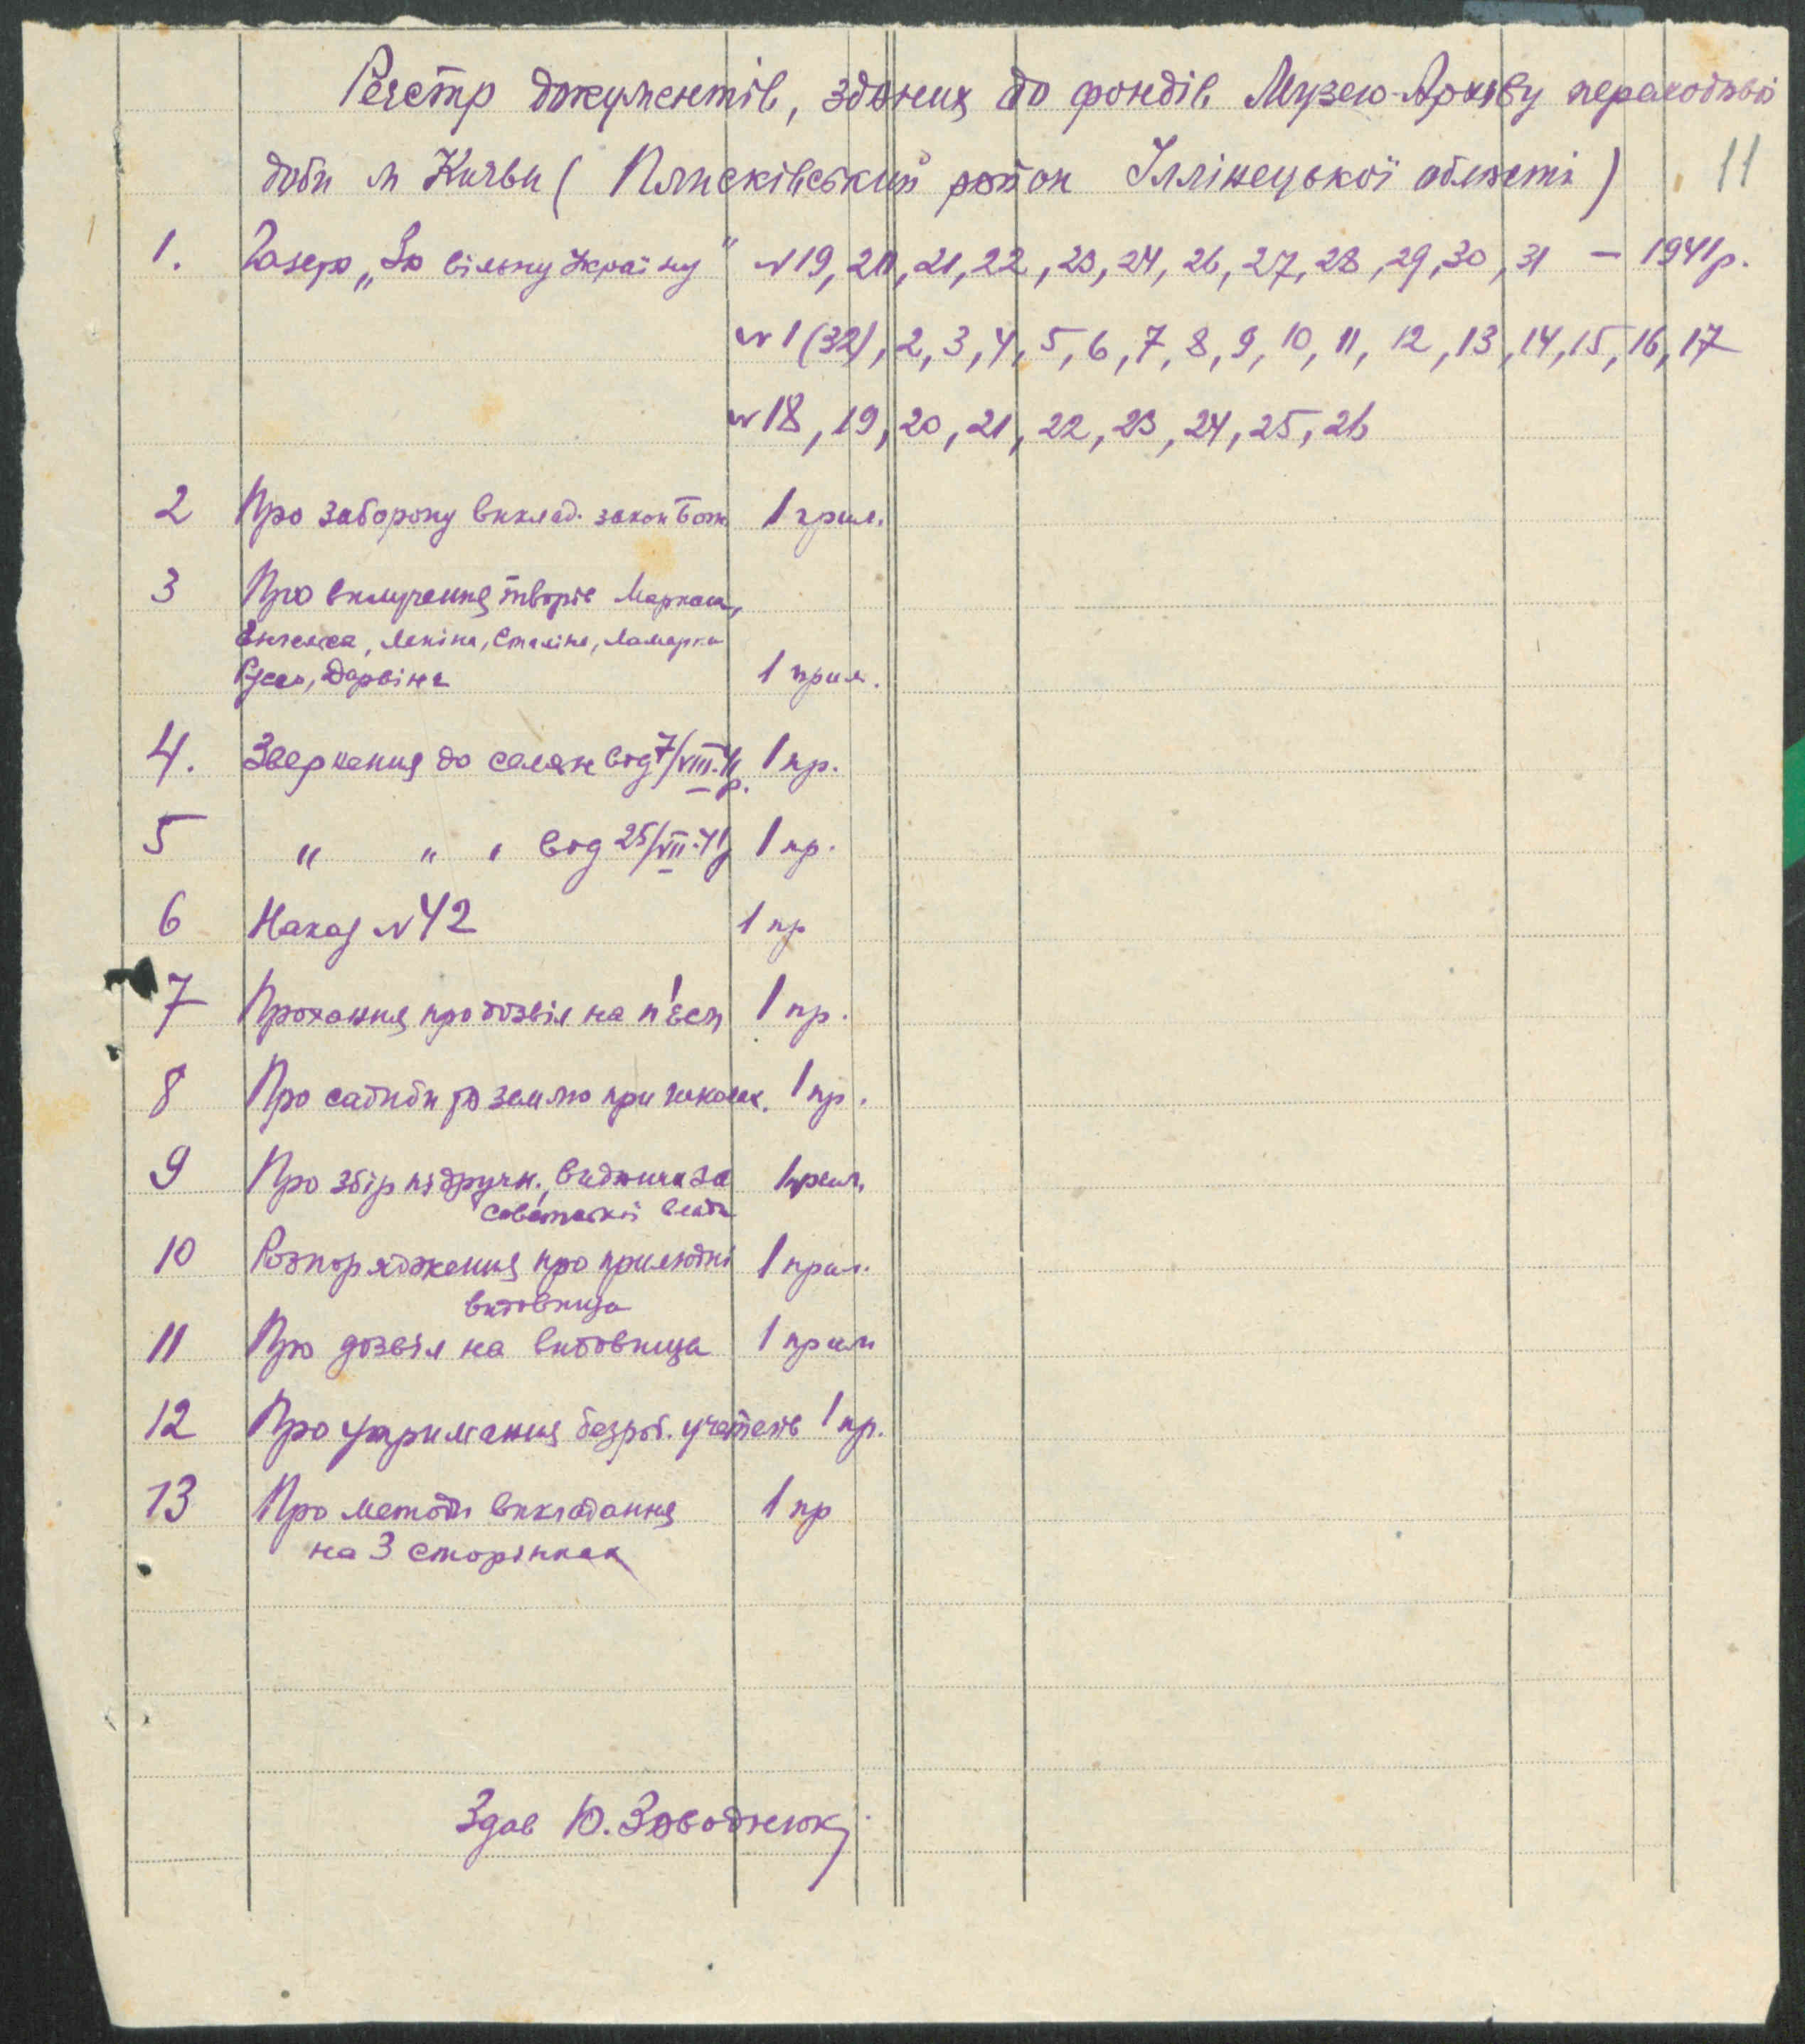 Реєстр документів, зданих до фондів Музею-Архіву переходової
доби м Києви ( Плисківський район Іллінецької області )
11
1. Газета „За вільну Україну" №19, 20, 21, 22, 23, 24, 26, 27, 28, 29, 30, 31 – 1941р.
№1 (32), 2, 3, 4, 5, 6, 7, 8, 9, 10, 11, 12, 13, 14, 15, 16, 17
№18, 19, 20, 21, 22, 23, 24, 25, 26
2 Про заборону виклад. закон Бож 1 прим.
3 Про вилучення творів Маркса,
Енгельса, Леніна, Сталіна, Ламарка
Руссо, Дарвіна 1 прим.
4. Звернення до селян від 7/VIII-41 р. 1 пр.
5 " " " від 25/VII-41 1 пр.
6 Наказ №42 1 пр
7 Прохання про дозвіл на п'єси 1 пр.
8 Про садиби та землю при школах. 1 пр.
9 Про збір підручн., видання за 1 прим.
совітської влади
10 Розпорядження про прилюдні 1 прим.
видовища
11 Про дозвіл на видовища 1 прим
12 Про утримання безроб. учителів 1 пр.
13 Про методи викладання 1 пр
на 3 сторінках
Здав Ю. Заводнюк